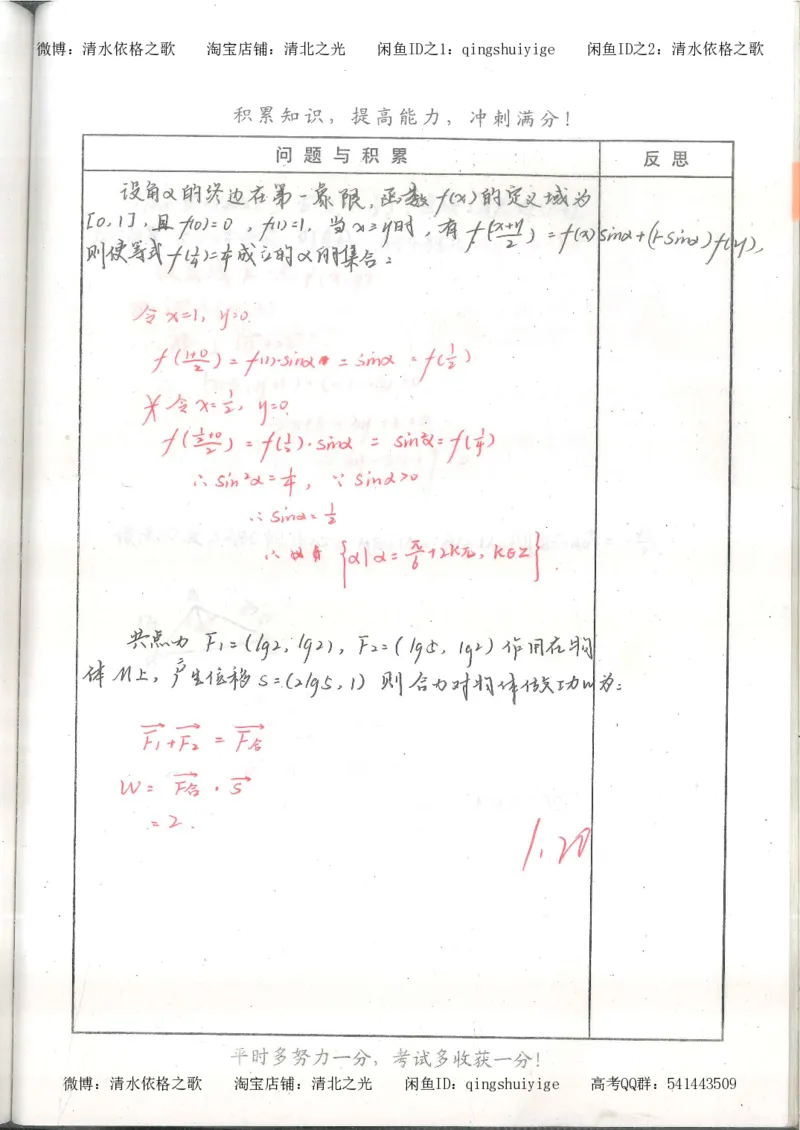 微博：清水依格之歌 淘宝店铺：清北之光 闲鱼ID之1：qingshuiyige 闲鱼ID之2：清水依格之歌
积累知识，提高能力，冲刺满分！
问题与积累 反思
设角α的终边在第一象限，函数f(x)的定义域为
[0,1]，且f(0)=0，f(1)=1，当x≥y时，有f(\frac{x+y}{2})=f(x)sinα+(1-sinα)f(y)，
则使等式f(\frac{1}{4})=\frac{1}{4}成立的α的集合：
令x=1，y=0.
f(\frac{1+0}{2})=f(1)·sinα=sinα=f(\frac{1}{2})
令x=\frac{1}{2}，y=0.
f(\frac{\frac{1}{2}+0}{2})=f(\frac{1}{2})·sinα=sin²α=f(\frac{1}{4})
∴sin²α=\frac{1}{4}，∵sinα>0
∴sinα=\frac{1}{2}
∴{α|α=\frac{π}{6}+2kπ，k∈Z}.
共点力F₁=(lg2，lg2)，F₂=(lg5，lg2)作用在物
体M上，产生位移S=(2lg5，1)则合力对物体做功W为：
F₁+F₂=F合
W=F合·S
=2.
1.20
平时多努力一分，考试多收获一分！
微博：清水依格之歌 淘宝店铺：清北之光 闲鱼ID：qingshuiyige 高考QQ群：541443509